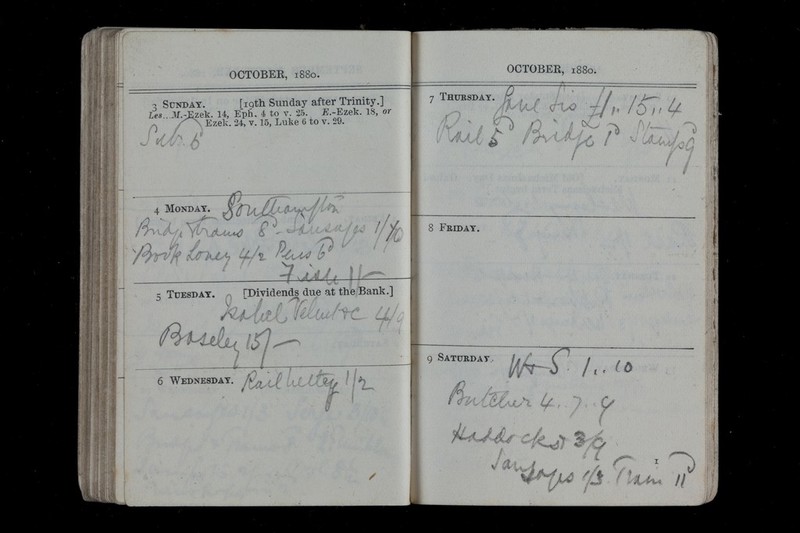 OCTOBER, 1880.
3 SUNDAY. [19th Sunday after Trinity.]
Les.. M.-Ezek. 14, Eph. 4 to v. 25. E.-Ezek. 18, or
Ezek. 24, v. 15, Luke 6 to v. 29.
4 MONDAY. Southampton
Bridge trams 8d - Sausages 1/
Book 4/2 Pens 6d
Fish 1/-
5 TUESDAY. [Dividends due at the Bank.]
Isabel Velvet &c 4/9
Baseley 15/-
6 WEDNESDAY. Rail 1/2
OCTOBER, 1880.
7 THURSDAY. £1,, 15,, 4
Rail 5d Bridge 1d Stamps 9
8 FRIDAY.
9 SATURDAY. W & S. 1,, 10
Butcher 4,, 7,, 9
Haddocks 3/9
Sausages 1/3 Tram 11d
1